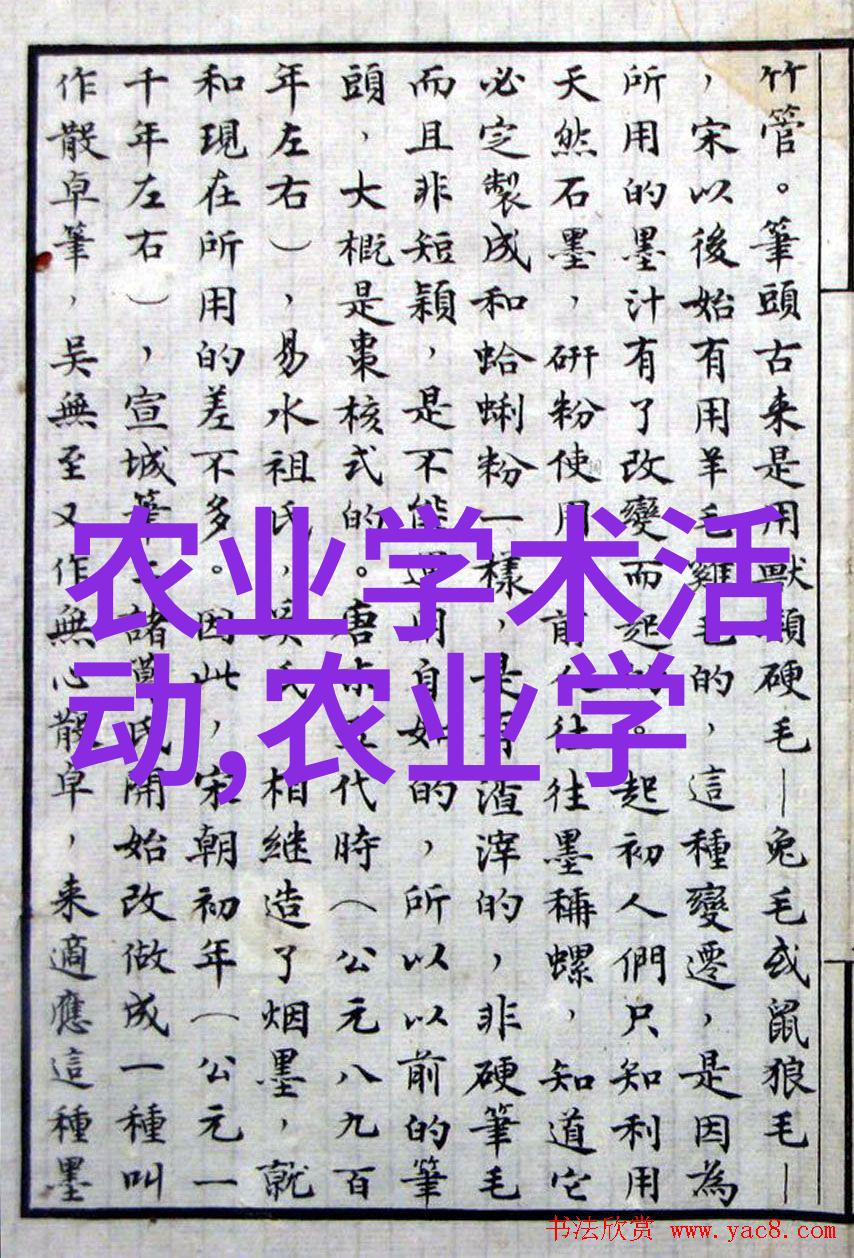 竹管。筆頭古来是用獸類硬毛—兔毛或鼠狼毛—
，宋以後始有用羊毛雞毛的，這種變遷，是因為
所用的墨汁有了改變而起的。起初人們只知利用
天然石墨，研粉使用，前人往往墨稱螺，知道它
必定製成和蛤蜊粉一樣，是有渣滓的，非硬筆毛
而且非短穎，是不能運用自如的，所以以前的筆
頭，大概是棗核式的。唐末五代時（公元八九百
年左右），易水祖氏，奚氏，相継造了烟墨，就
和現在所用的差不多。因此，宋朝初年（公元一
千年左右），宣城筆工諸葛氏開始改做成一種叫
作散卓筆，吴無至又作無心散卓，来適應這種墨
农业学术活
动,农业学
书法欣赏 www.yac8.com